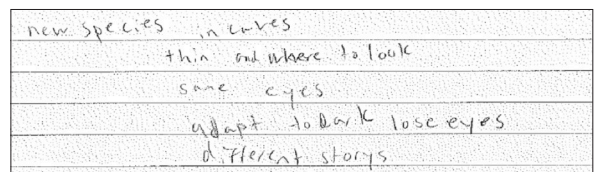 new species in caves
thin and where to look
same eyes
adapt to dark lose eyes
different storys